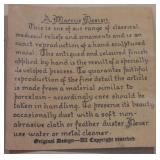 A Marcus Design
This is one of our range of classical,
medieval reliefs and ornaments and is an
exact reproduction of a hand sculptured
model. The antiqued and coloured finish
applied by hand is the results of a specially
developed process. To guarantee faithful
reproduction of the fine detail the article
is made from a material similar to
porcelain - accordingly care should be
taken in handling. To preserve its beauty
occasionally dust with a soft non-
abrasive cloth or feather duster. Never
use water or metal cleaner
Original Design - All Copyright reserved